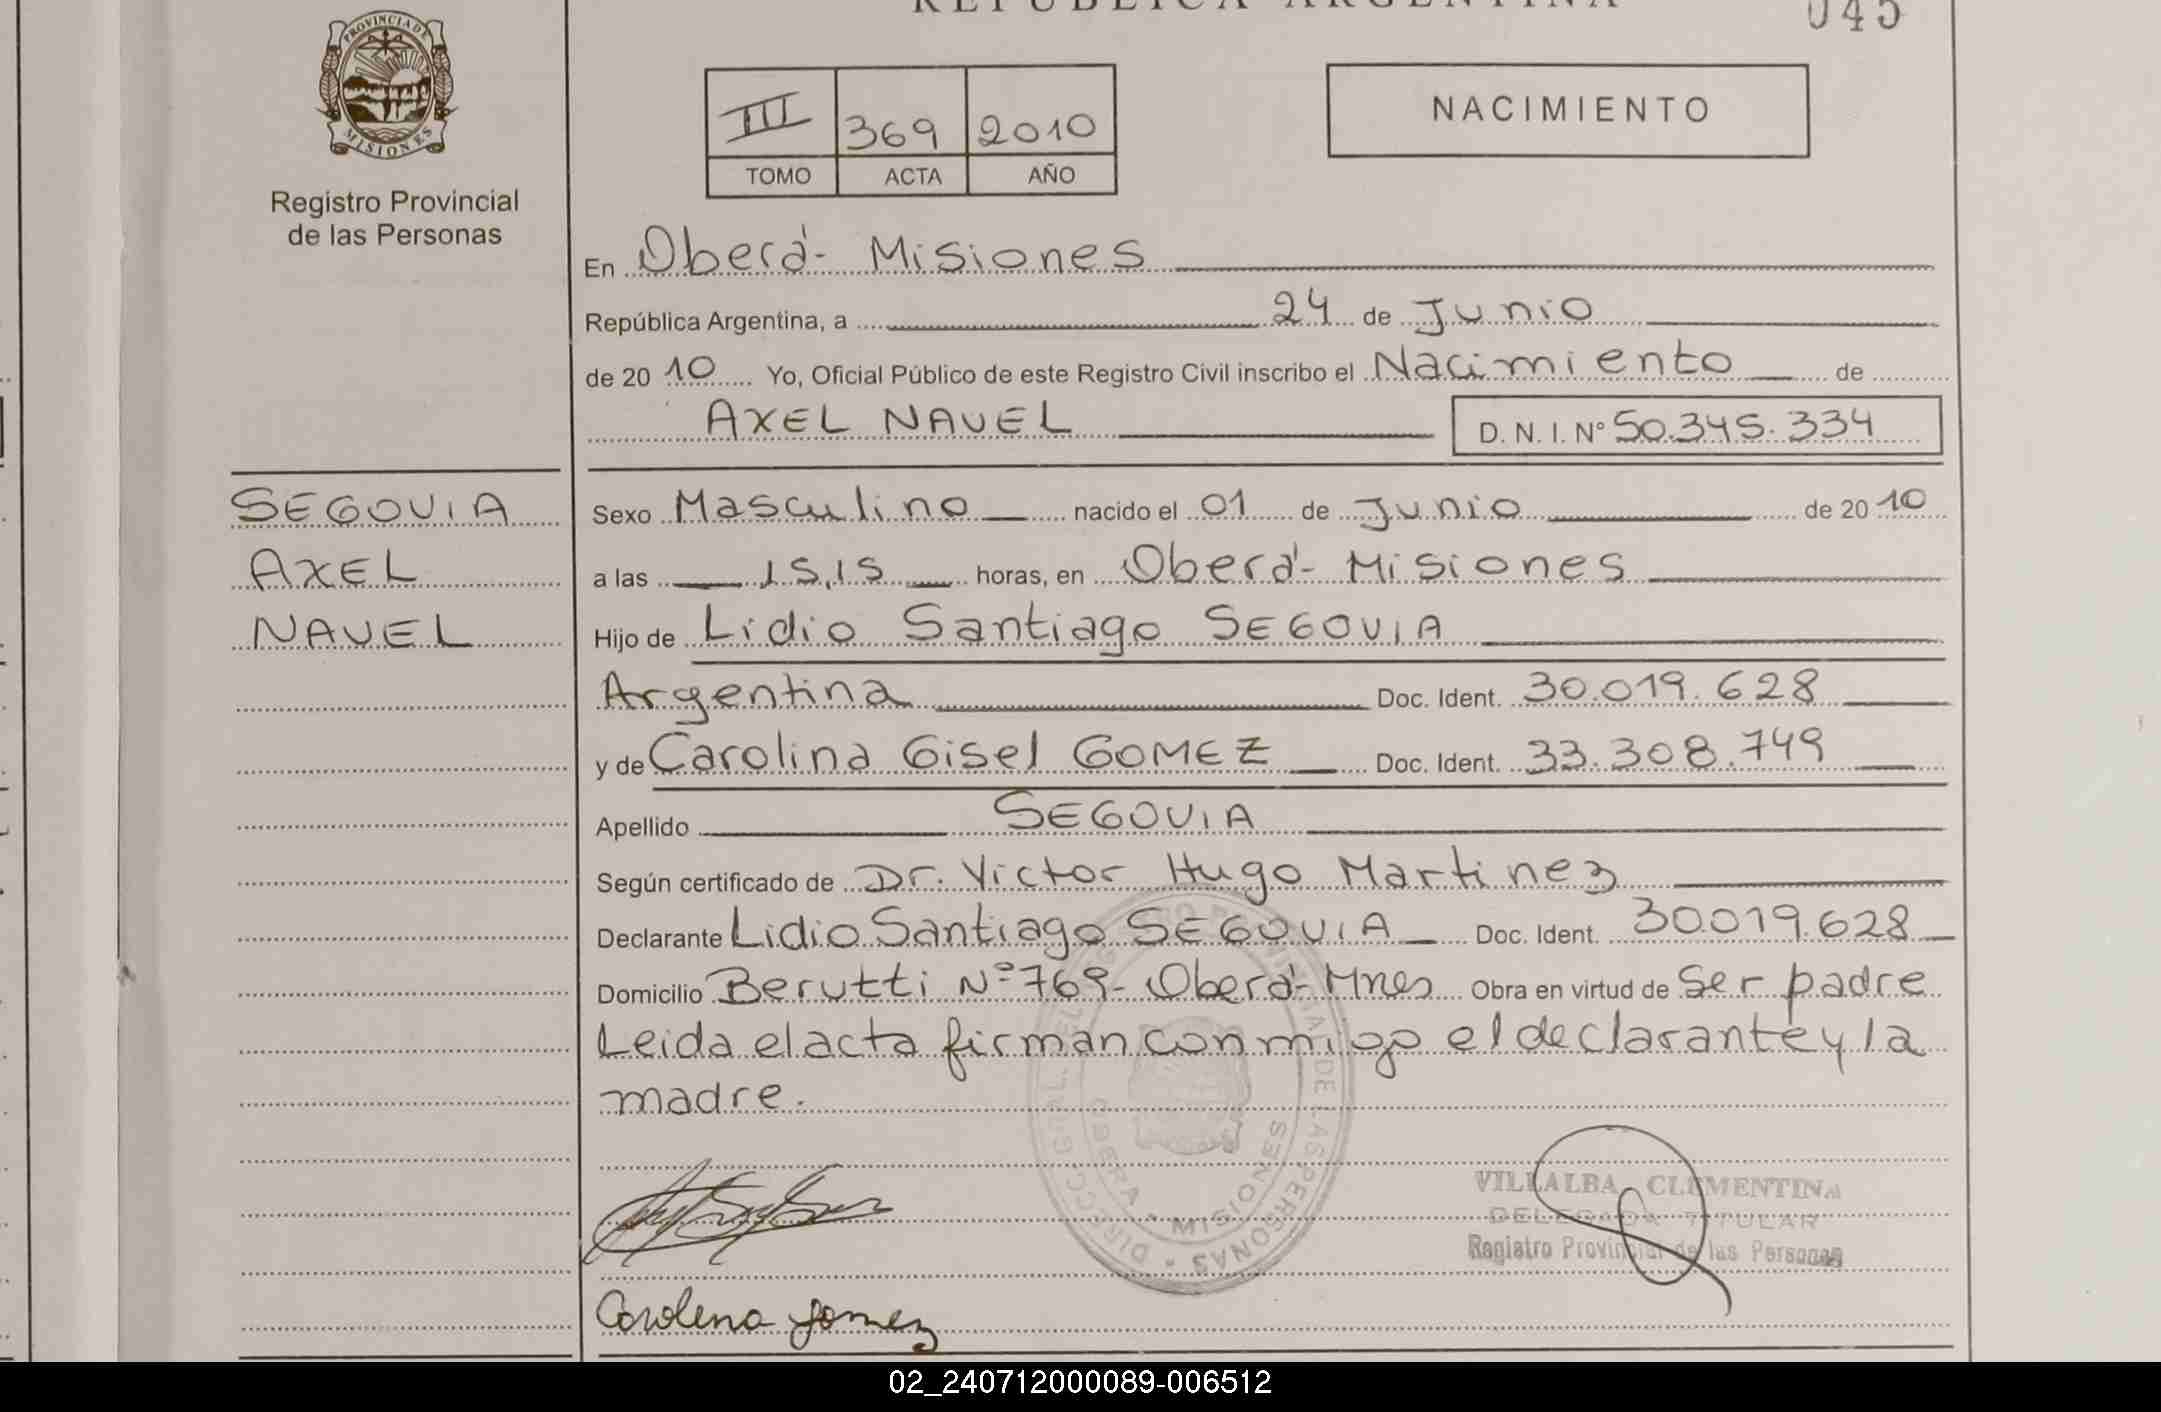 REPUBLICA ARGENTINA
045
PROVINCIA DE
MISIONES
Registro Provincial
de las Personas
III 369 2010
TOMO ACTA AÑO
NACIMIENTO
En Oberá- Misiones
República Argentina, a 24 de Junio
de 2010 Yo, Oficial Público de este Registro Civil inscribo el Nacimiento de
AXEL NAUEL D. N. I. Nº 50.345.334
SEGOVIA
AXEL
NAUEL
Sexo Masculino nacido el 01 de Junio de 2010
a las 15,15 horas, en Oberá- Misiones
Hijo de Lidio Santiago SEGOVIA
Argentina Doc. Ident. 30.019.628
y de Carolina Gisel GOMEZ Doc. Ident. 33.308.749
Apellido SEGOVIA
Según certificado de Dr. Victor Hugo Martinez
Declarante Lidio Santiago SEGOVIA Doc. Ident. 30.019.628
Domicilio Berutti Nº 769- Oberá- Mnes Obra en virtud de Ser padre
Leida el acta firman conmigo el declarante y la
madre.
OBERA * MISIONES
VILLALBA CLEMENTINA
DELEGADA TITULAR
Registro Provincial de las Personas
Carolina Gomez
02_240712000089-006512